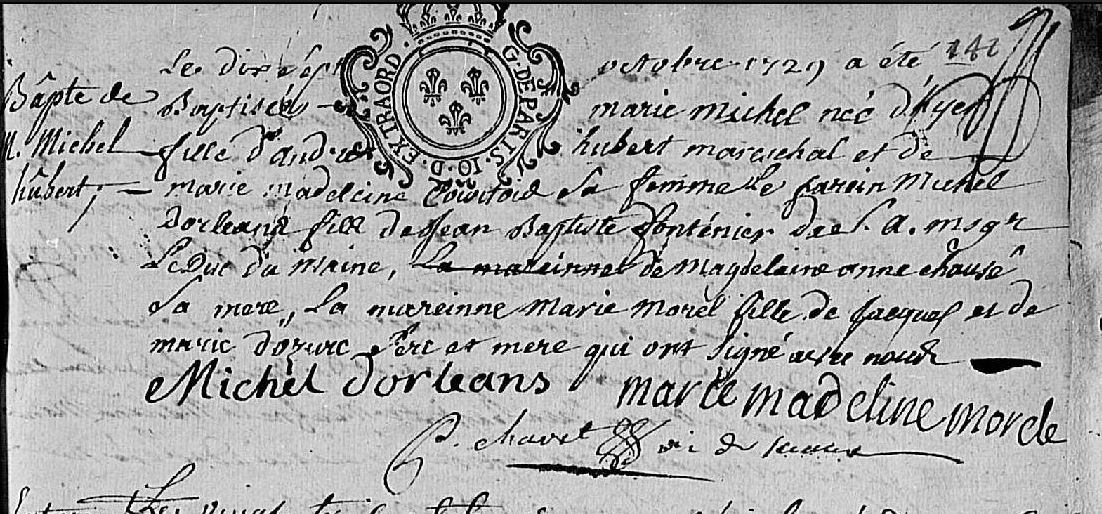 141
Le dix sept octobre 1729 a été
Bâpte de
M. Michel
hûbert
Baptisée marie michel née d'hyer
fille d'andré hubert mareschal et de
marie madeleine sa femme le parein Michel
Dorleans fils de Jean Baptiste fonténier de S. A. msgr
Le Duc du Maine, la mareinne de Magdelaine anne
Sa mere, La mareinne Marie Morel fille de Jacques et de
marie pere et mere qui ont signé avec nous
Michel dorleans marie madeline morele
G. DE PARIS. 10. D. EXTRAORD